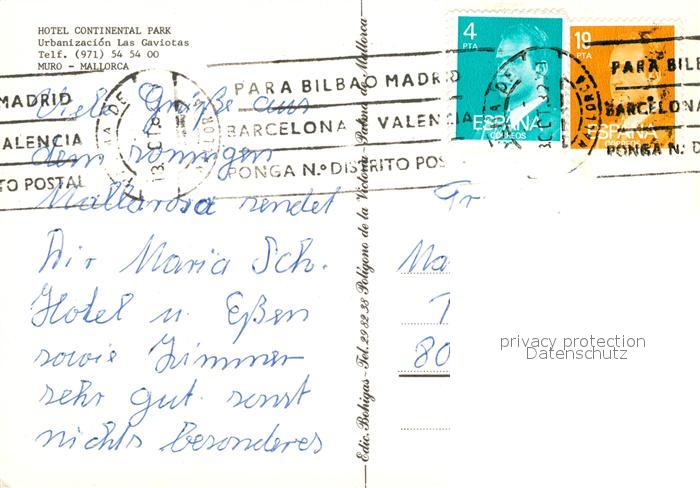 HOTEL CONTINENTAL PARK
Urbanización Las Gaviotas
Telf. (971) 54 54 00
MURO - MALLORCA
4
PTA
ESPAÑA
CORREOS
19
PTA
ESPAÑA
CORREOS
MADRID
VALENCIA
TO POSTAL
PARA BILBAO MADRID
BARCELONA VALENCIA
PONGA N.º DISTRITO POS
PARA BILB
BARCELONA
PONGA N.º DIS
Viele Grüße aus
dem sonnigen
Mallarosa sendet
Dir Maria Sch.
Hotel u. Eßen
sowie Zimmer
sehr gut. sonst
nichts besonderes
Edic. Bohigas - Tel. 29 82 38 Polígono de la Victoria - Palma de Mallorca
Fr.
Ma
80
privacy protection
Datenschutz